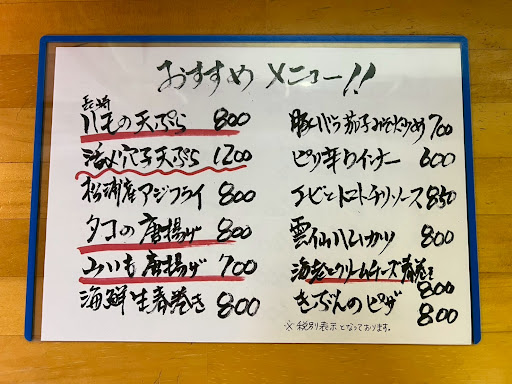 おすすめメニュー!!
長崎
ハモの天ぷら 800
活〆穴子天ぷら 1200
松浦産アジフライ 800
タコの唐揚げ 800
山いも唐揚げ 700
海鮮生春巻き 800
豚バラ茄子みそ炒め 700
ピリ辛ウインナー 600
エビとトマトチリソース 850
雲仙ハムカツ 800
海老とクリームチーズ春巻き 800
きぶんのピザ 800
※税別表示となっております。